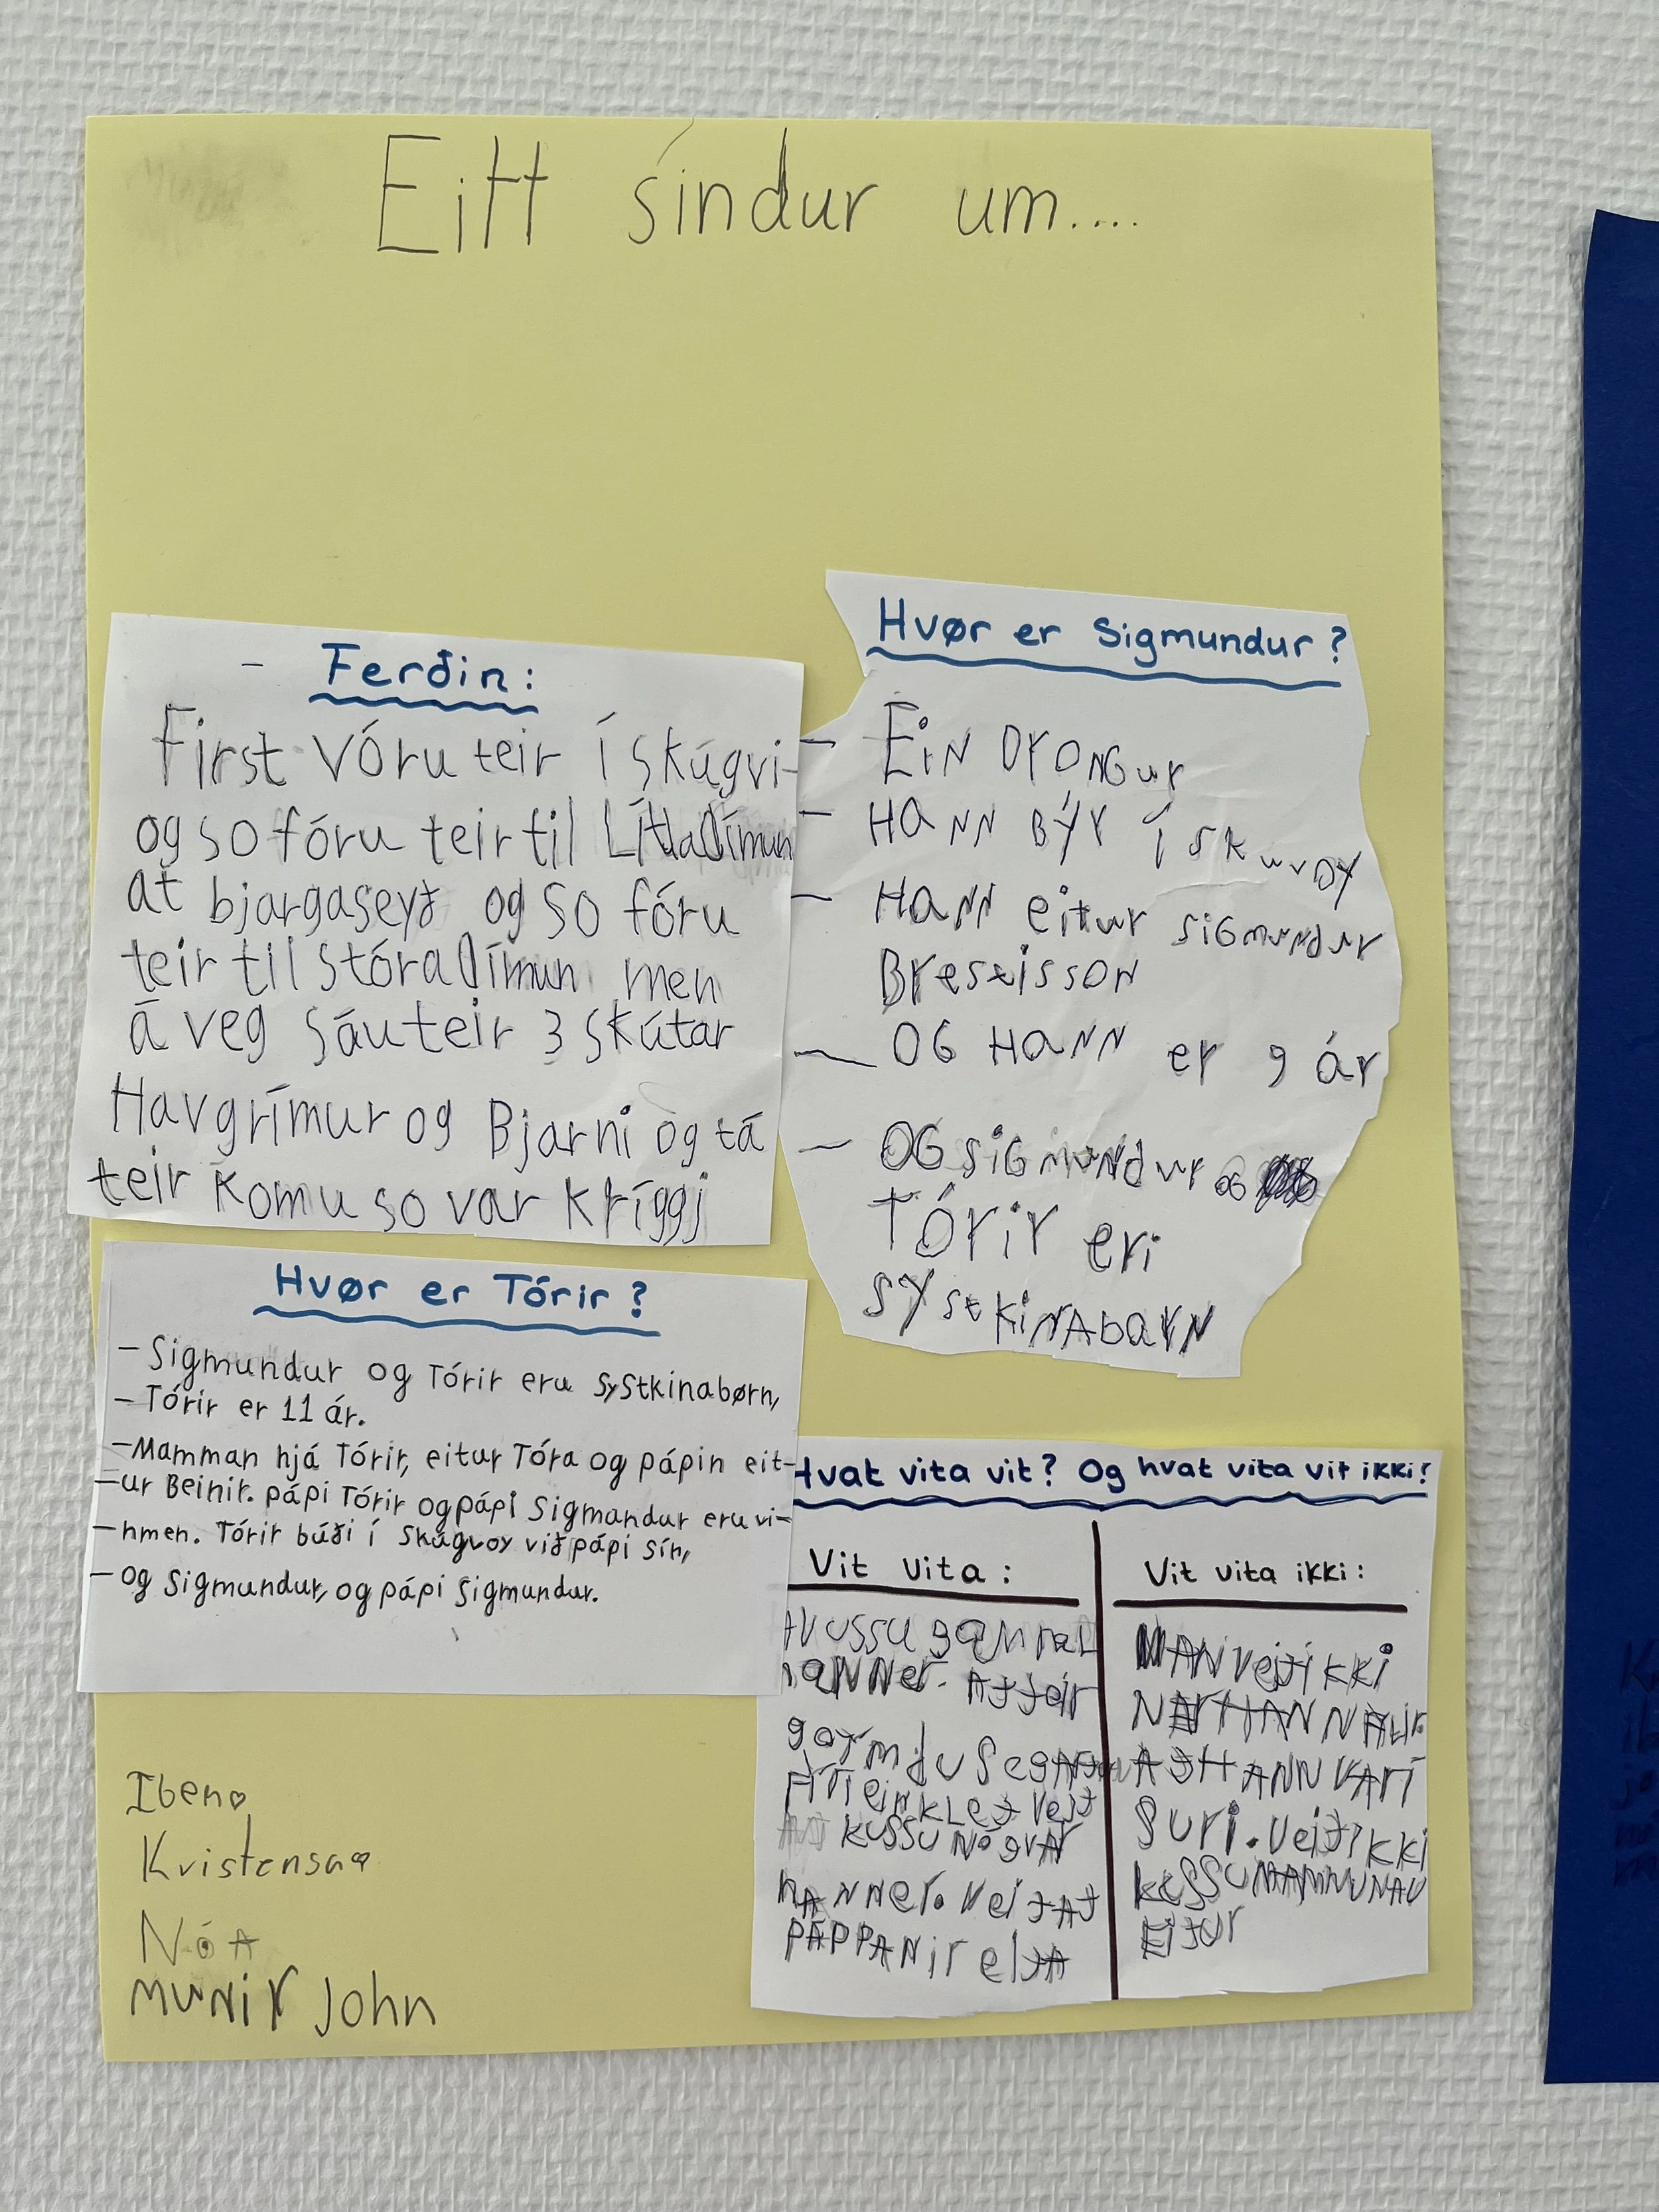 Eitt síndur um....
- Ferðin:
First vóru teir í skúgvi-
og so fóru teir til Lítladímun
at bjargaseyð og so fóru
teir til stóradímun men
á veg sáu teir 3 skútar
Havgrímur og Bjarni og tá
teir komu so var kríggj
Hvør er Sigmundur?
- EiN DrONGur
- HaNN BÝr í SKuvoy
- HaNN eitur siGmuNdur
BrestissoN
- OG HaNN er 9 ár
- OG siGmuNdur OG
TÓrir eri
systKiNAbarN
Hvør er Tórir?
- Sigmundur og Tórir eru systkinabørn,
- Tórir er 11 ár.
- Mamman hjá Tórir, eitur Tóra og pápin eit-
- ur Beinir. pápi Tórir og pápi Sigmundur eru vi-
- nmen. Tórir búði í Skúgvoy við pápi sín,
- og Sigmundur, og pápi Sigmundur.
Hvat vita vit? Og hvat vita vit ikki!
Vit vita:
AVUSSU gAMMAL
HANNer. ATTeir
KUSSU NÓgVAr
HANNer. VeiTAT
PÁPPANir
Vit vita ikki:
MAN VeiTiKKi
ATHANN VARÍ
SUri. VeiTiKKi
KUSSU
EiTUr
Iben
Kristensa
NÓA
muNir John